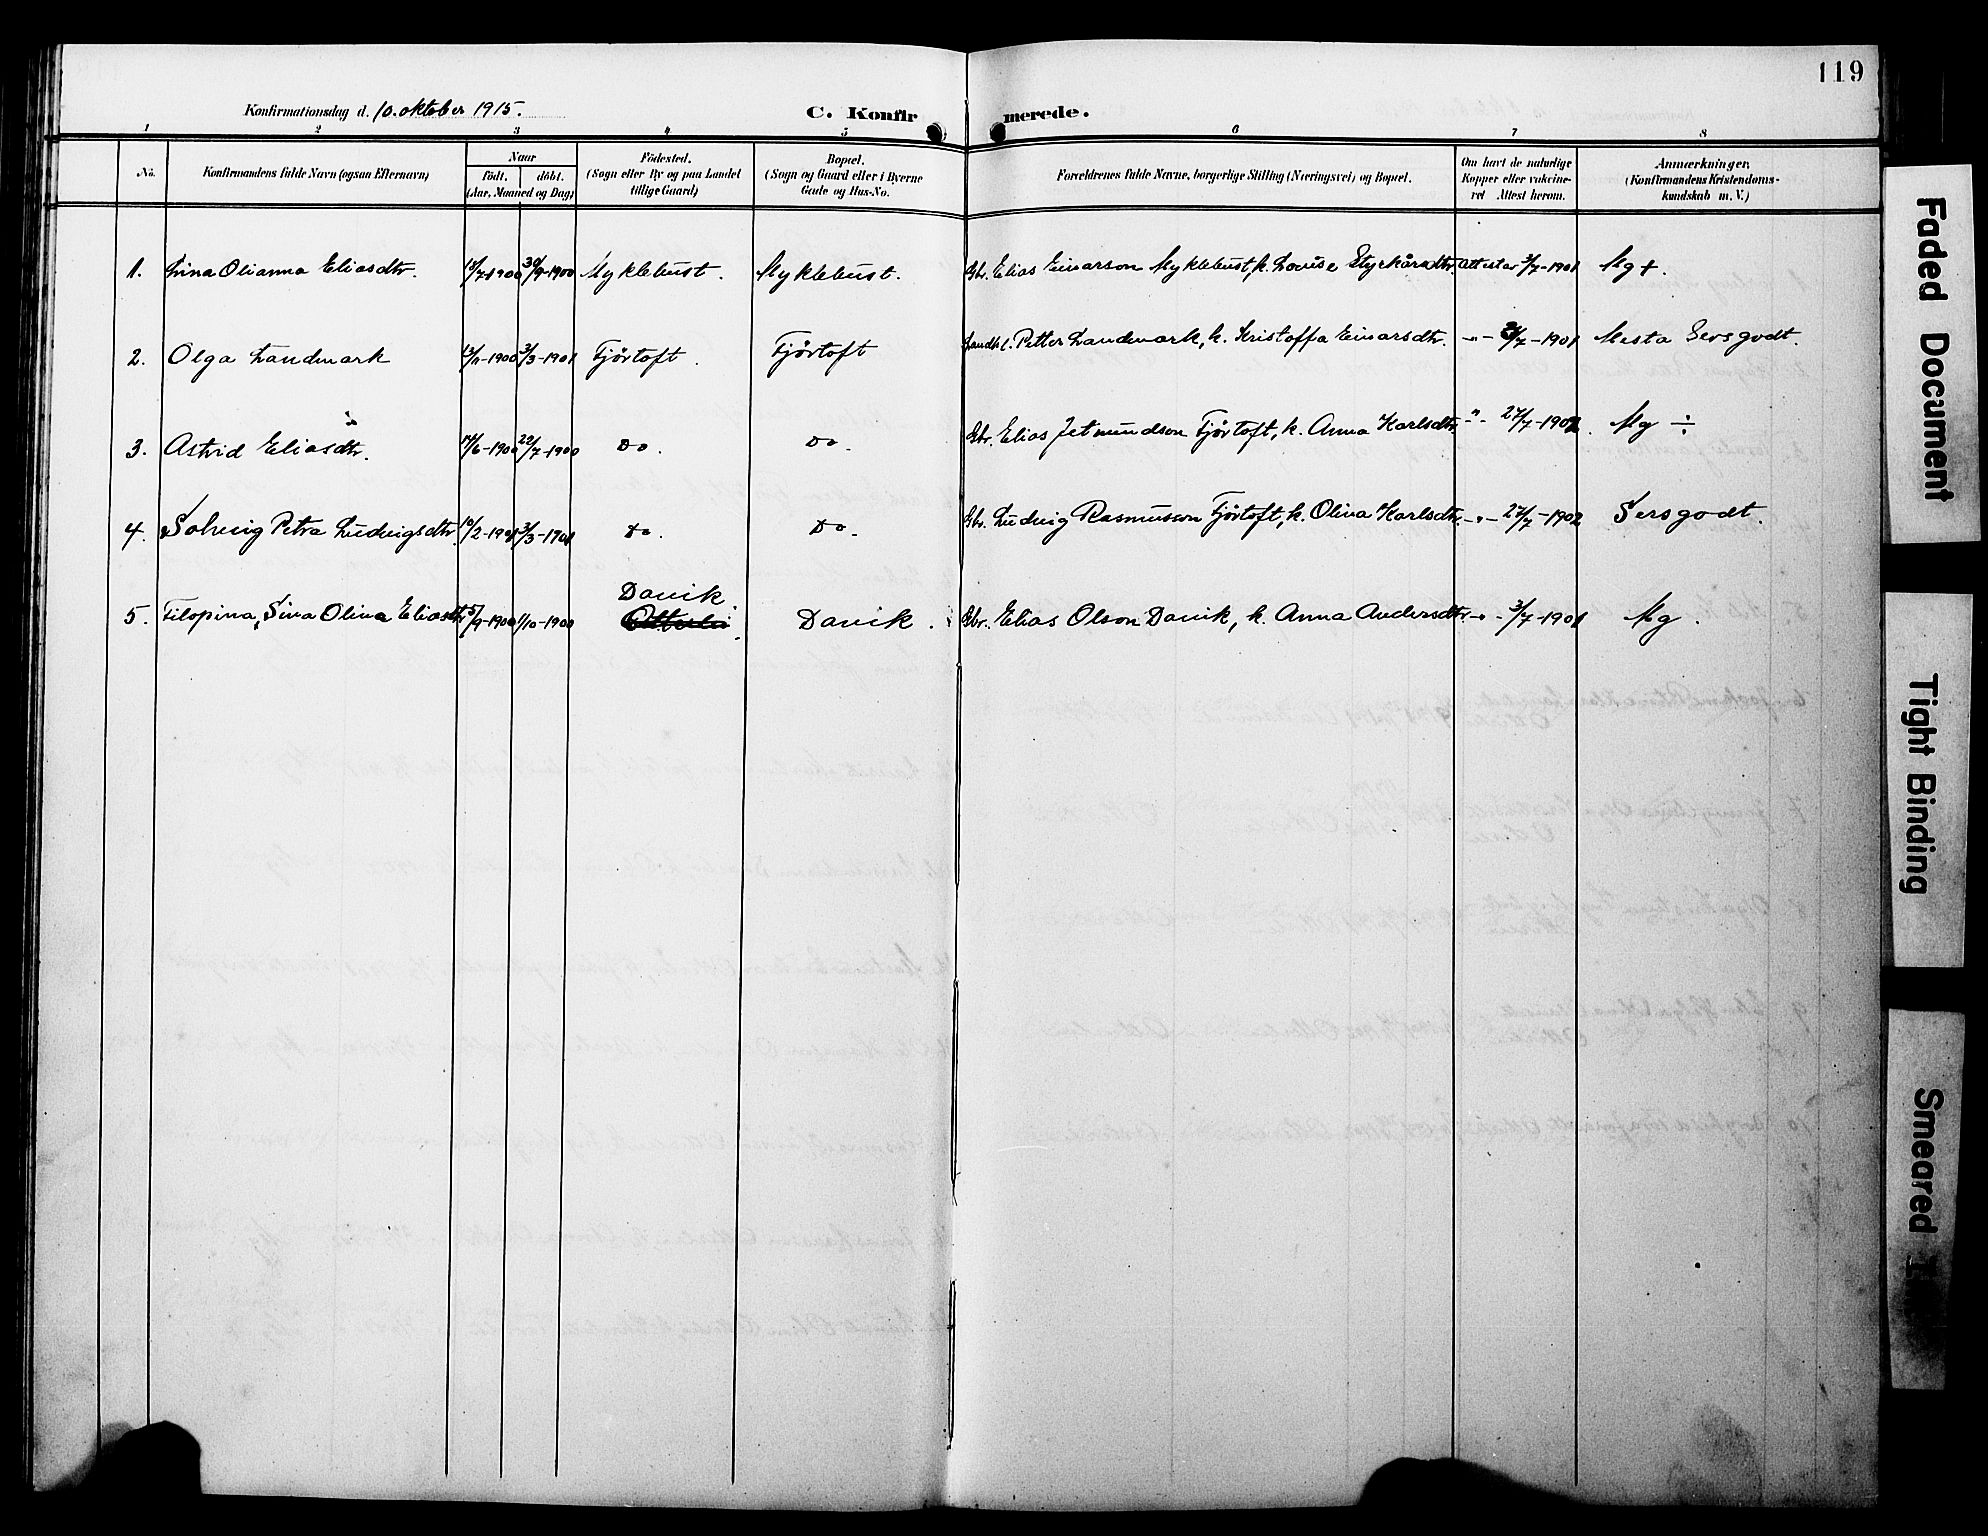 119
Konfirmationsdag d. 10. oktober 1915.
C. Konfirmerede.
1 2 3 4 5 6 7 8
No. Konfirmandens fulde Navn (ogsaa Efternavn) Naar født, døbt. (Aar, Maaned og Dag) Fødested. (Sogn eller By og paa Landet tillige Gaard) Bopæl. (Sogn og Gaard eller i Byerne Gade og Hus-No. Forældrenes fulde Navne, borgerlige Stilling (Næringsvei) og Bopæl. Om havt de naturlige Kopper eller vakcineret Attest herom. Anmærkninger, (Konfirmandens Kristendomskundskab m. V.)
1. Lina Olianna Eliasdtr. 13/7-1900 30/9-1900 Myklebust. Myklebust. Gbr. Elias Einarson Myklebust, k. Louise Styrkårsdtr. Attester 3/7-1901 Mg +.
2. Olga Landmark 13/11-1900 3/3-1901 Fjörtoft. Fjörtoft Landh. Petter Landmark, k. Kristoffa Einarsdtr. -"- /7-1901 Mesta Sersgodt.
3. Astrid Eliasdtr. 14/6-1900 22/7-1900 Do. Do. Gbr. Elias Jetmundson Fjörtoft, k. Anna Karlsdtr. -"- 27/7-1902. Mg ÷
4. Solveig Petra Ludvigsdtr. 10/2-1901 3/3-1901 Do. Do. Gbr. Ludvig Rasmusson Fjörtoft, k. Olina Karlsdtr. -"- 27/7-1902 Sersgodt.
5. Filopina, Sina Olina Eliasdtr 5/9-1900 1/10-1900 Davik Davik. Gbr. Elias Olson Davik, k. Anna Andersdtr. -"- 3/7-1901 Mg.
Faded Document
Tight Binding
Smeared